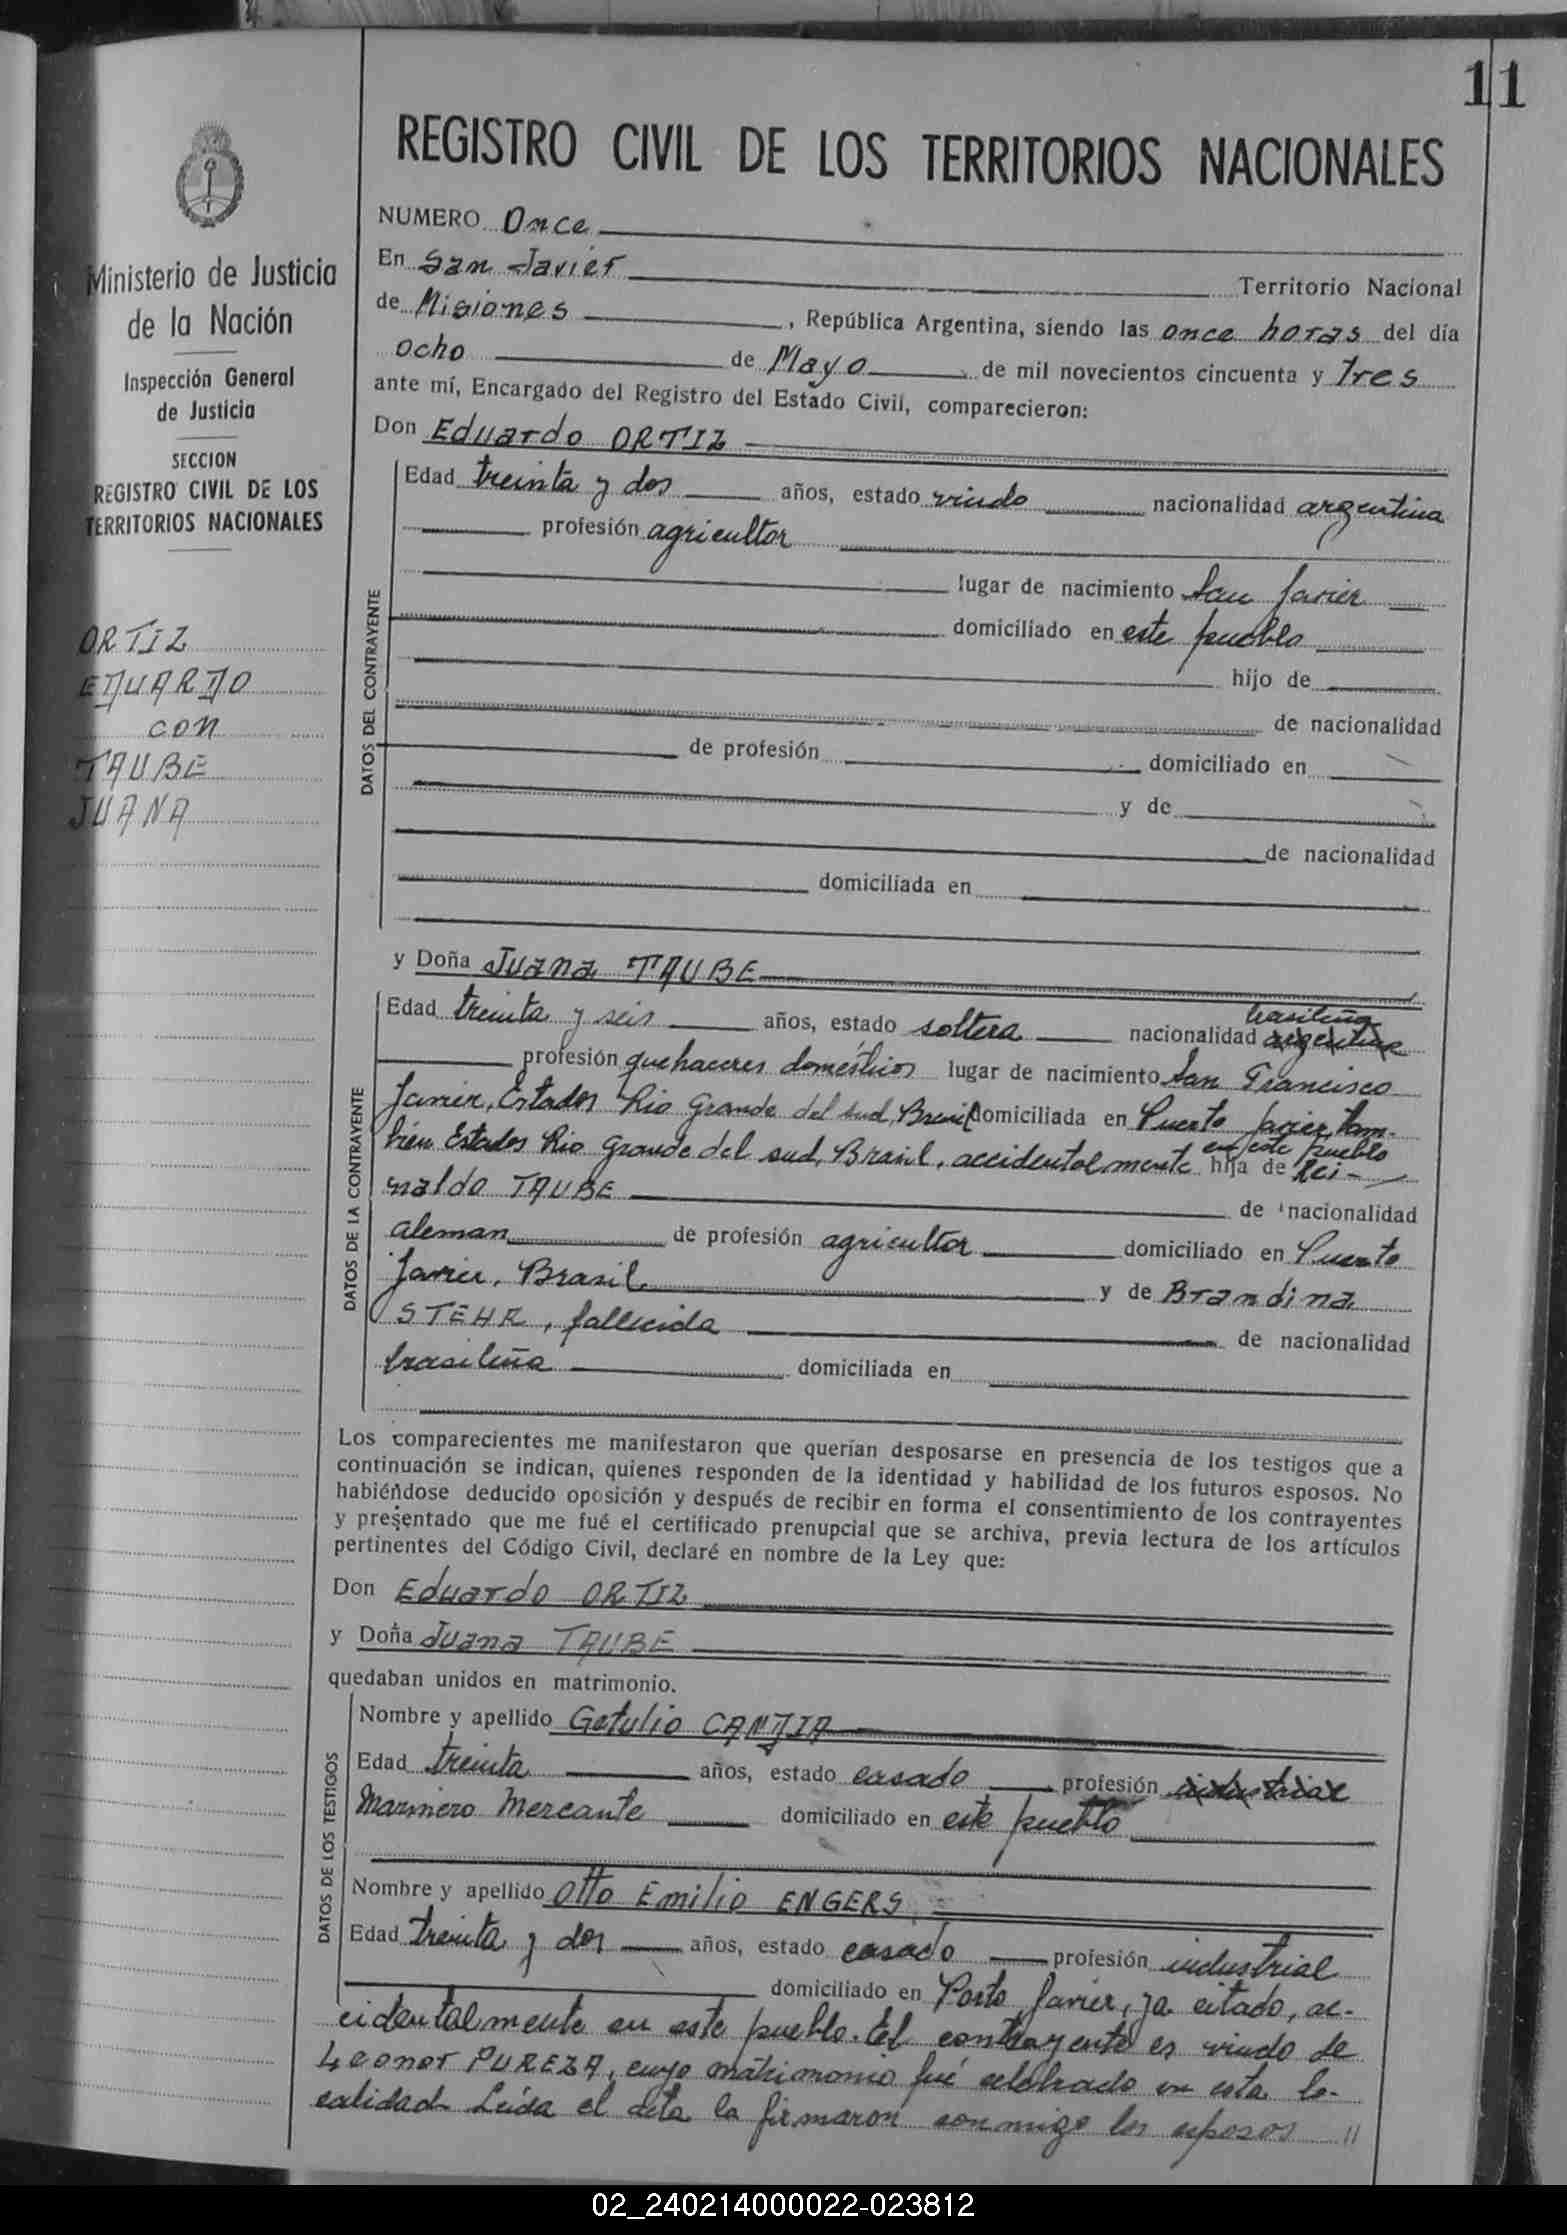 11
REGISTRO CIVIL DE LOS TERRITORIOS NACIONALES
Ministerio de Justicia
de la Nación
Inspección General
de Justicia
SECCION
REGISTRO CIVIL DE LOS
TERRITORIOS NACIONALES
ORTIZ
EDUARDO
con
TAUBE
JUANA
NUMERO Once
En San Javier Territorio Nacional
de Misiones, República Argentina, siendo las once horas del día
ocho de Mayo de mil novecientos cincuenta y Tres
ante mí, Encargado del Registro del Estado Civil, comparecieron:
Don Eduardo ORTIZ
DATOS DEL CONTRAYENTE
Edad treinta y dos años, estado viudo nacionalidad argentina
profesión agricultor
lugar de nacimiento San Javier
domiciliado en este pueblo
hijo de
de nacionalidad
de profesión domiciliado en
y de
de nacionalidad
domiciliada en
y Doña Juana TAUBE
DATOS DE LA CONTRAYENTE
brasileña
Edad treinta y seis años, estado soltera nacionalidad argentina
profesión quehaceres domésticos lugar de nacimiento San Francisco
Javier, Estados Rio Grande del sud, Brasil domiciliada en Puerto Javier, tam-
en este pueblo
bién Estados Rio Grande del sud, Brasil, accidentalmente hija de Rei-
naldo TAUBE de nacionalidad
aleman de profesión agricultor domiciliado en Puerto
Javier, Brasil y de Brandina
STEHR, fallecida de nacionalidad
brasileña domiciliada en
Los comparecientes me manifestaron que querían desposarse en presencia de los testigos que a
continuación se indican, quienes responden de la identidad y habilidad de los futuros esposos. No
habiéndose deducido oposición y después de recibir en forma el consentimiento de los contrayentes
y presentado que me fué el certificado prenupcial que se archiva, previa lectura de los artículos
pertinentes del Código Civil, declaré en nombre de la Ley que:
Don Eduardo ORTIZ
y Doña Juana TAUBE
quedaban unidos en matrimonio.
DATOS DE LOS TESTIGOS
Nombre y apellido Getulio CANDIA
Edad treinta años, estado casado profesión industrial
Marinero Mercante domiciliado en este pueblo
Nombre y apellido Otto Emilio ENGERS
Edad treinta y dos años, estado casado profesión industrial
domiciliado en Porto Javier, ya citado, ac-
cidentalmente en este pueblo. El contrayente es viudo de
Leonor PUREZA, cuyo matrimonio fué celebrado en esta lo-
calidad. Leída el acta la firmaron conmigo los esposos //
02_240214000022-023812